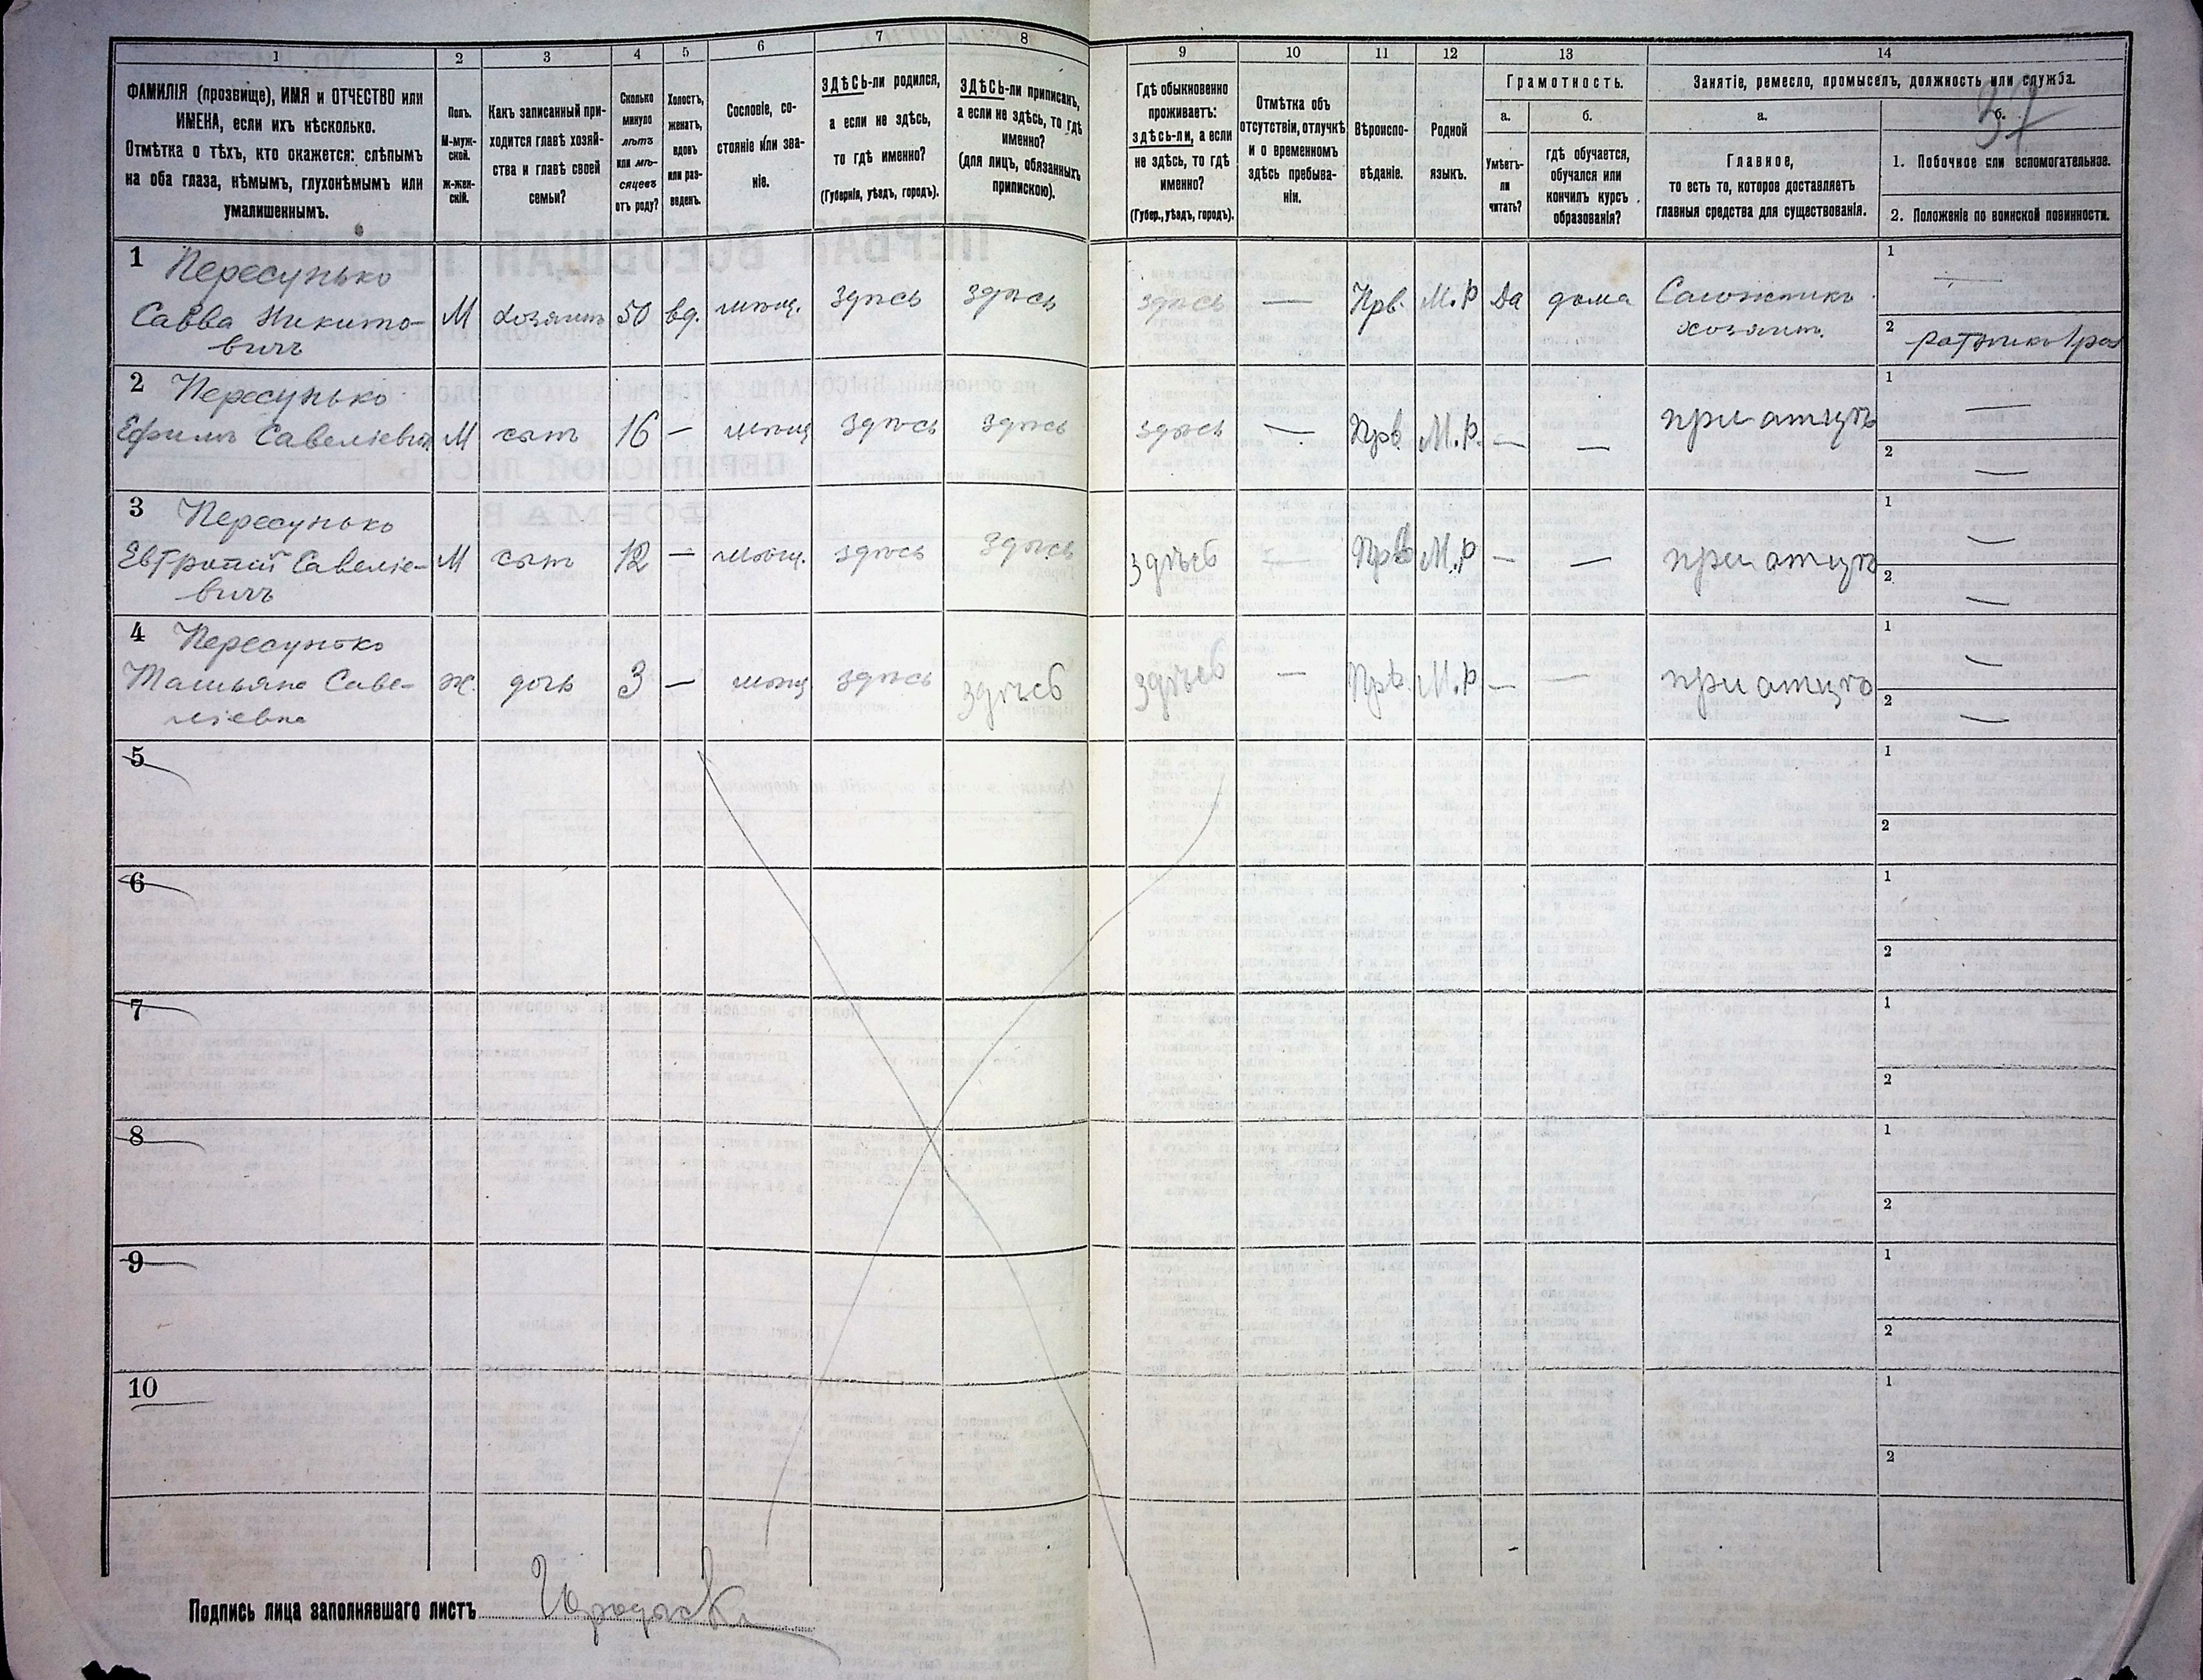 1 2 3 4 5 6 7 8 9 10 11 12 13 14
ФАМИЛІЯ (прозвище), ИМЯ и ОТЧЕСТВО или
ИМЕНА, если ихъ нѣсколько.
Отмѣтка о тѣхъ, кто окажется: слѣпымъ
на оба глаза, нѣмымъ, глухонѣмымъ или
умалишеннымъ.
Полъ.
М-муж-
ской.
ж-жен-
скій.
Какъ записанный при-
ходится главѣ хозяй-
ства и главѣ своей
семьи?
Сколько
минуло
лѣтъ
или мѣ-
сяцевъ
отъ роду?
Холостъ,
женатъ,
вдовъ
или раз-
веденъ.
Сословіе, со-
стояніе или зва-
ніе.
ЗДѢСЬ-ли родился,
а если не здѣсь,
то гдѣ именно?
(Губернія, уѣздъ, городъ).
ЗДѢСЬ-ли приписанъ,
а если не здѣсь, то гдѣ
именно?
(для лицъ, обязанныхъ
припискою).
Гдѣ обыкновенно
проживаетъ:
здѣсь-ли, а если
не здѣсь, то гдѣ
именно?
(Губер., уѣздъ, городъ).
Отмѣтка объ
отсутствіи, отлучкѣ
и о временномъ
здѣсь пребыва-
ніи.
Вѣроиспо-
вѣданіе.
Родной
языкъ.
Грамотность.
а.
Умѣетъ-
ли
читать?
б.
гдѣ обучается,
обучался или
кончилъ курсъ
образованія?
Занятіе, ремесло, промыселъ, должность или служба.
37
а.
Главное,
то есть то, которое доставляетъ
главныя средства для существованія.
б.
1. Побочное или вспомогательное.
2. Положеніе по воинской повинности.
1 Пересунько
Савва Никито-
вичъ
М хозяинъ 50 вд. мѣщ. здѣсь здѣсь здѣсь — Прв. М.Р Да дома Сапожникъ
хозяинъ
1 —
2 ратникъ 1 раз
2 Пересунько
Ефимъ Савеліевич М сынъ 16 — мѣщ здѣсь здѣсь здѣсь — Прв М.Р. — — при отцѣ
1 —
2 —
3 Пересунько
Евтропій Савеліе- М сынъ 12 — мѣщ. здѣсь здѣсь здѣсь — Прв М.Р — — при отцѣ
вичъ
1 —
2 —
4 Пересунько
Татьяна Саве- ж. дочь 3 — мѣщ здѣсь здѣсь здѣсь — Прв. М.Р — — при отцѣ
ліевна
1 —
2 —
5
1
2
6
1
2
7
1
2
8
1
2
9
1
2
10
1
2
Подпись лица заполнявшаго листъ